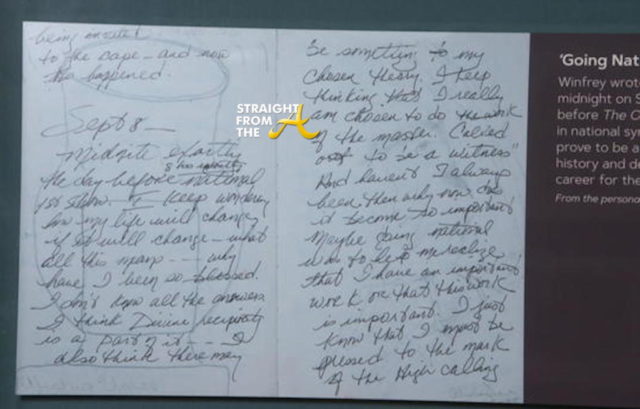 being invited
to the cape – and now
this happened.
Sept 8 —
Midnite exactly
8 hrs
the day before national
1st show. — I keep wondering
how my life will change
if it will change – what
all this means - - - why
have I been so blessed.
I don't know all the answers
I think Divine reciprocity
is a part of it - - - I
also think there may
be something to my
Chosen theory. I keep
thinking that I really
am chosen to do the work
of the master. Called
out to be a witness"
And haven't I always
been then why now does
it become so important
Maybe going national
was to help me realize
that I have an important
work or that this work
is important. I just
know that I must be
pressed to the mark
of the High calling
STRAIGHT
FROM
THE A
'Going Nat
Winfrey wrot
midnight on S
before The O
in national sy
prove to be a
history and d
career for the
From the persona